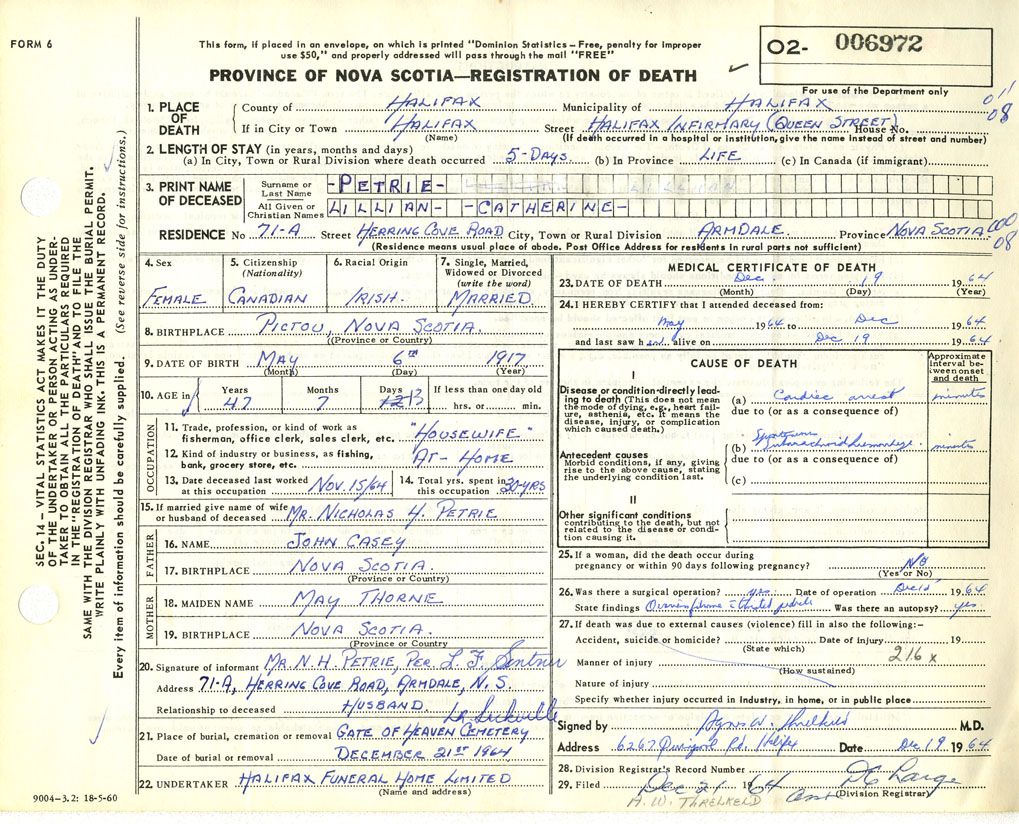 FORM 6
This form, if placed in an envelope, on which is printed "Dominion Statistics – Free, penalty for improper
use $50," and properly addressed will pass through the mail "FREE"
PROVINCE OF NOVA SCOTIA—REGISTRATION OF DEATH
02- 006972
For use of the Department only
011
08
1. PLACE OF DEATH
County of HALIFAX Municipality of HALIFAX
If in City or Town HALIFAX Street HALIFAX INFIRMARY (QUEEN STREET) House No.
(Name) (If death occurred in a hospital or institution, give the name instead of street and number)
2. LENGTH OF STAY (in years, months and days)
(a) In City, Town or Rural Division where death occurred 5-DAYS. (b) In Province LIFE (c) In Canada (if immigrant)
3. PRINT NAME OF DECEASED
Surname or Last Name -PETRIE- LILLIAN
All Given or Christian Names LILLIAN- -CATHERINE-
RESIDENCE No 71-A Street HERRING COVE ROAD City, Town or Rural Division ARMDALE. Province NOVA SCOTIA
000
08
(Residence means usual place of abode. Post Office Address for residents in rural parts not sufficient)
4. Sex FEMALE
5. Citizenship (Nationality) CANADIAN
6. Racial Origin IRISH.
7. Single, Married, Widowed or Divorced (write the word) MARRIED.
8. BIRTHPLACE PICTOU, NOVA SCOTIA.
(Province or Country)
9. DATE OF BIRTH MAY 6TH 1917
(Month) (Day) (Year)
10. AGE in Years 47 Months 7 Days 12 13 If less than one day old hrs. or min.
OCCUPATION
11. Trade, profession, or kind of work as
fisherman, office clerk, sales clerk, etc. "HOUSEWIFE"
12. Kind of industry or business, as fishing,
bank, grocery store, etc. AT-HOME
13. Date deceased last worked at this occupation NOV. 15/64
14. Total yrs. spent in this occupation 20-YRS
15. If married give name of wife or husband of deceased MR. NICHOLAS H. PETRIE
FATHER
16. NAME JOHN CASEY
17. BIRTHPLACE NOVA SCOTIA.
(Province or Country)
MOTHER
18. MAIDEN NAME MAY THORNE
19. BIRTHPLACE NOVA SCOTIA.
(Province or Country)
20. Signature of informant MR. N.H. PETRIE, PER L. F. Sentner
Address 71-A, HERRING COVE ROAD, ARMDALE, N.S.
Relationship to deceased HUSBAND.
21. Place of burial, cremation or removal GATE OF HEAVEN CEMETERY
Date of burial or removal DECEMBER 21ST 1964
22. UNDERTAKER HALIFAX FUNERAL HOME LIMITED
(Name and address)
MEDICAL CERTIFICATE OF DEATH
23. DATE OF DEATH Dec. 19 1964
(Month) (Day) (Year)
24. I HEREBY CERTIFY that I attended deceased from:
May 1964 to Dec 1964
and last saw her alive on Dec 19 1964
CAUSE OF DEATH
Approximate interval between onset and death
I
Disease or condition directly leading to death (This does not mean the mode of dying, e.g., heart failure, asthenia, etc. It means the disease, injury, or complication which caused death.)
(a) Cardiac arrest minutes
due to (or as a consequence of)
(b) Spontaneous subarachnoid hemorrhage minutes
due to (or as a consequence of)
(c)
Antecedent causes
Morbid conditions, if any, giving rise to the above cause, stating the underlying condition last.
II
Other significant conditions
contributing to the death, but not related to the disease or condition causing it.
25. If a woman, did the death occur during
pregnancy or within 90 days following pregnancy? No
(Yes or No)
26. Was there a surgical operation? yes Date of operation Dec 15 1964
State findings Was there an autopsy? yes
27. If death was due to external causes (violence) fill in also the following:-
Accident, suicide or homicide? Date of injury 19
(State which)
216 x
Manner of injury
(How sustained)
Nature of injury
Specify whether injury occurred in industry, in home, or in public place
Signed by Agnes W. Threlkeld M.D.
Address 6267 Quinpool Rd. Halifax Date Dec 19 1964
28. Division Registrar's Record Number
29. Filed Dec 21 1964 DC Large
(Division Registrar)
A.W. THRELKELD
SEC. 14 – VITAL STATISTICS ACT MAKES IT THE DUTY
OF THE UNDERTAKER OR PERSON ACTING AS UNDERTAKER
TO OBTAIN ALL THE PARTICULARS REQUIRED
IN THE "REGISTRATION OF DEATH" AND TO FILE THE
SAME WITH THE DIVISION REGISTRAR WHO SHALL ISSUE THE BURIAL PERMIT.
WRITE PLAINLY WITH UNFADING INK. THIS IS A PERMANENT RECORD.
Every item of information should be carefully supplied. (See reverse side for instructions.)
9004-3.2: 18-5-60